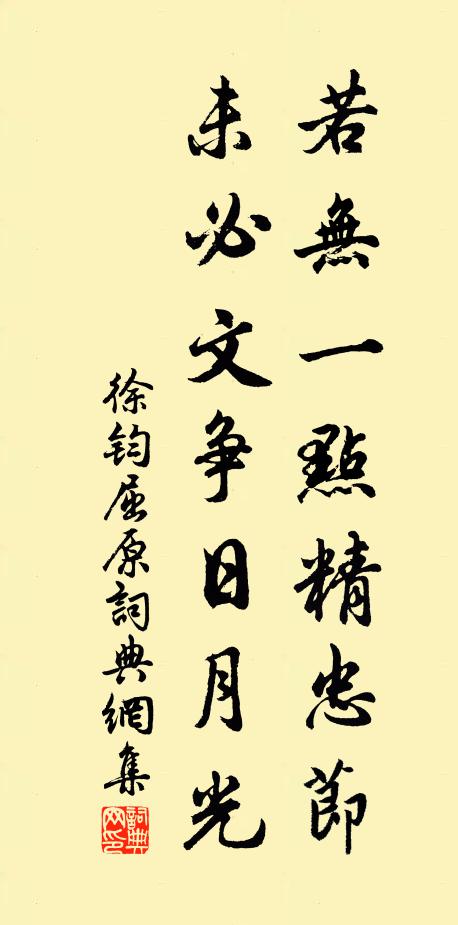 若無一點精忠節
未必文争日月光
徐鈞屈原詞典網集
詞典網印